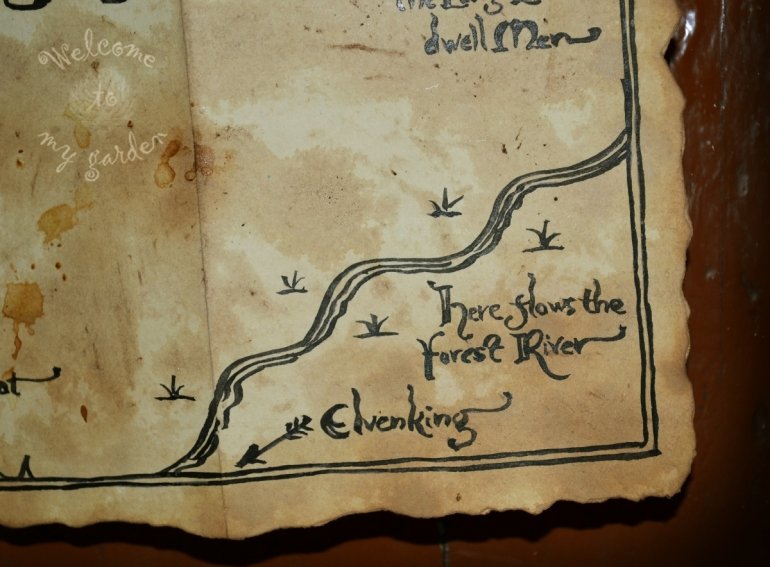 Welcome
to
my garden
dwell Men
There flows the
Forest River
Elvenking